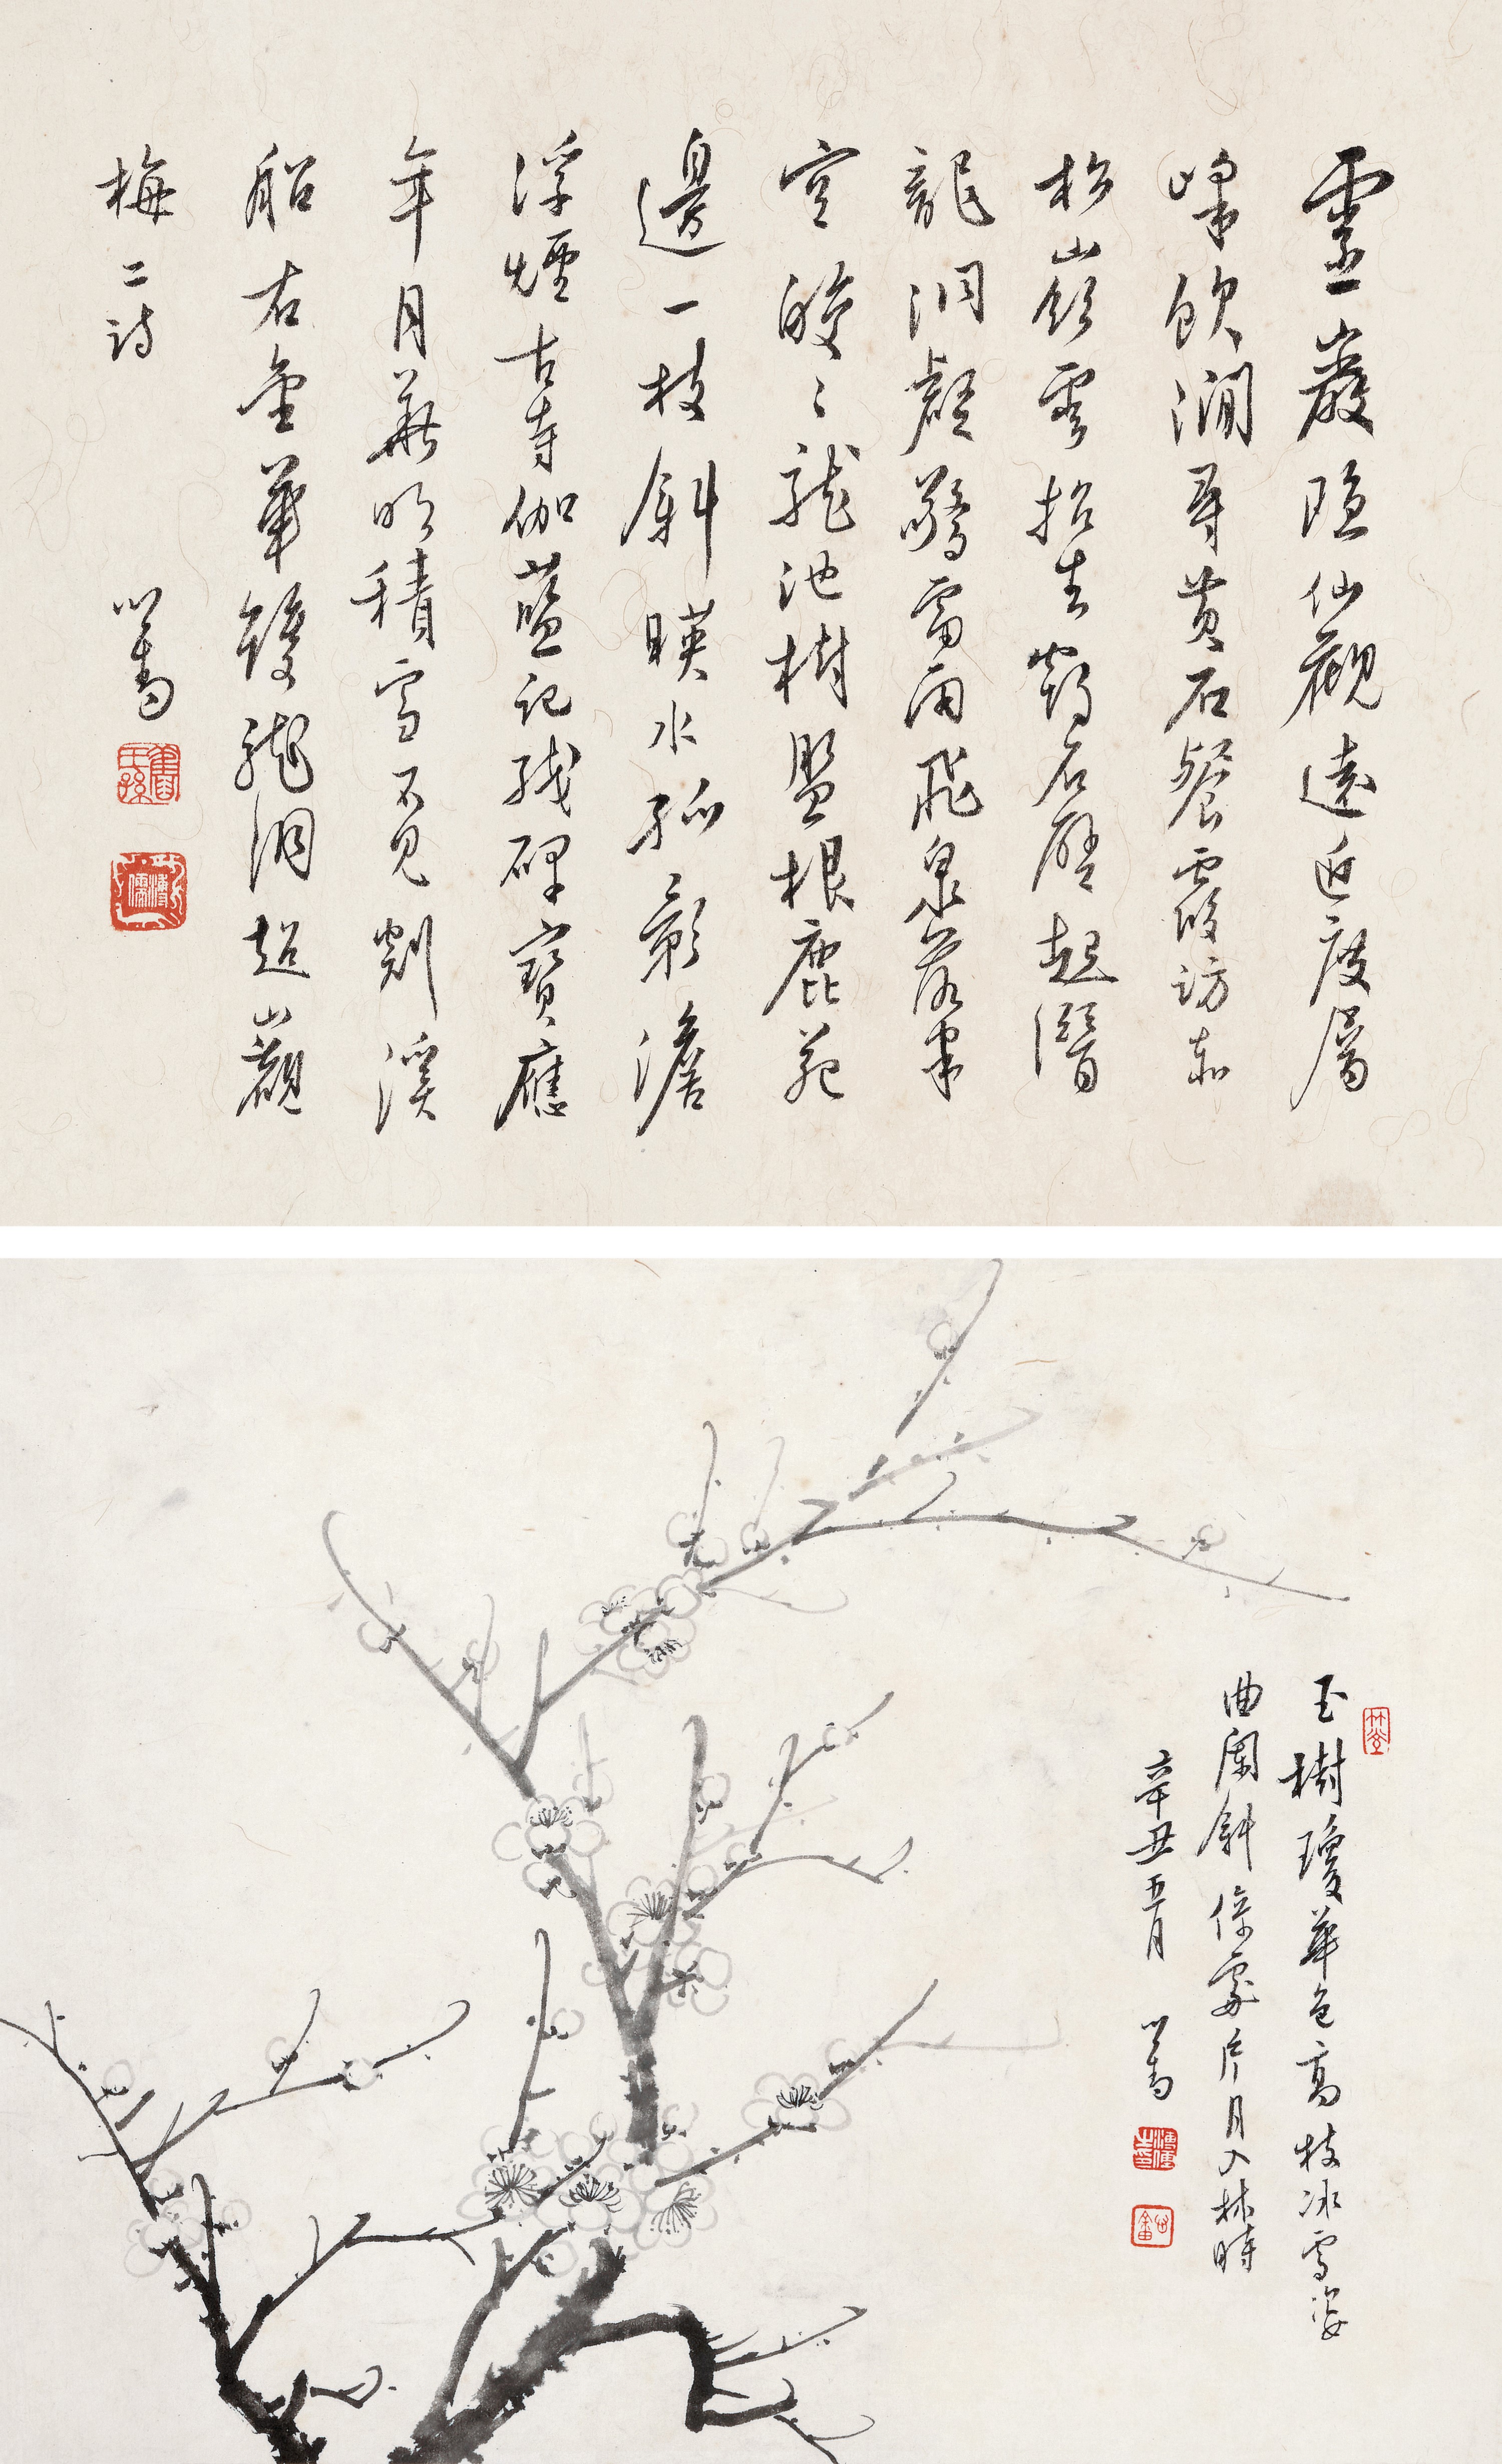 靈巖隱仙觀遠近度層
峰飲澗尋黃石餐霞訪赤
松嶺雲招去鶴石壁起潛
龍洞壑驚雷雨飛泉落半
空皎〻龍池樹盤根鹿苑
邊一枝斜暎水孤影澹
浮煙古寺伽藍記殘碑寶應
年月華明積雪不見剡溪
船右金華雙龍洞超山觀
梅二詩 心畬
舊王孫
溥儒
玉樹瓊華色高枝冰雪姿
曲闌斜倚處片月入林時
辛丑五月 心畬